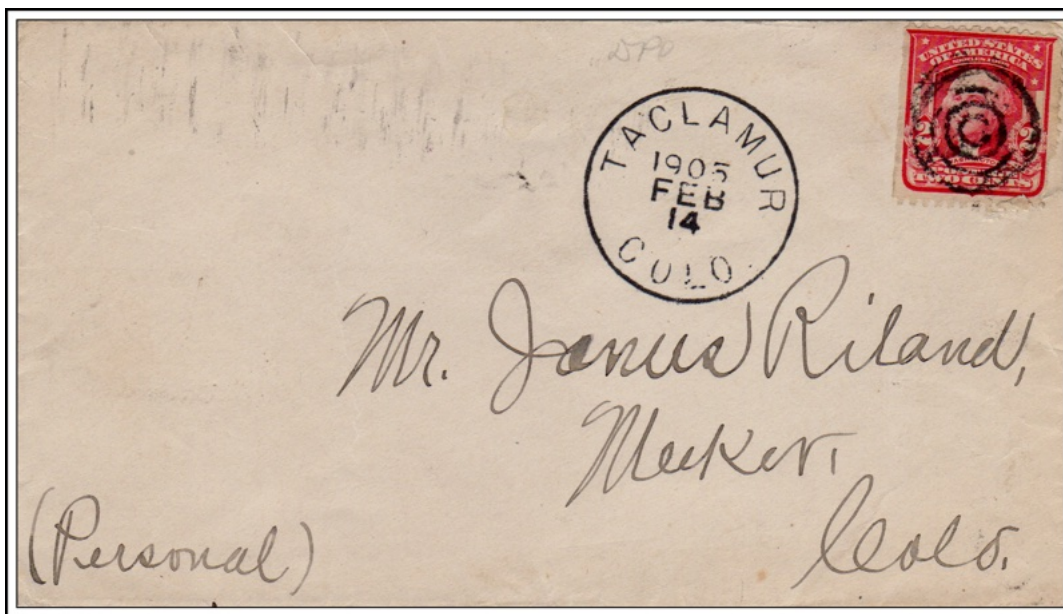 DPO
UNITED STATES
OF AMERICA
2 2
TWO CENTS
TACLAMUR
1905
FEB
14
COLO
Mr. James Riland,
Meeker,
Colo.
(Personal)